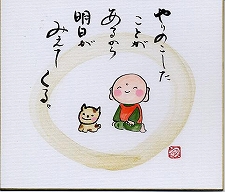 やりのこした
ことが
あるから
明日が
みえて
くる。